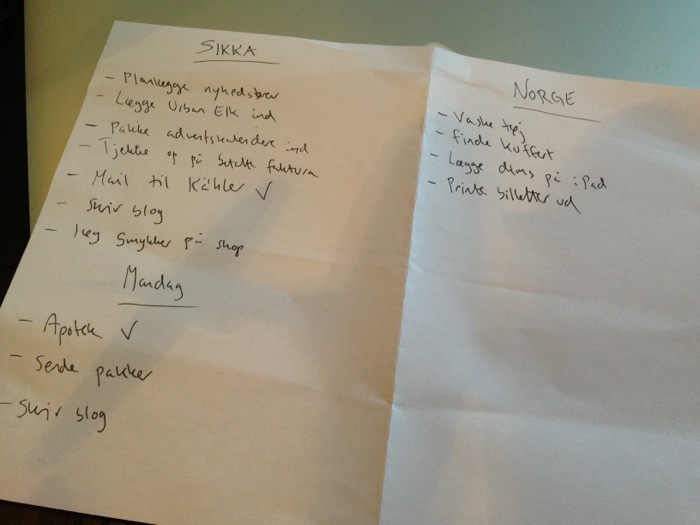 SIKKA
- Planlægge nyhedsbrev
- Lægge Urban Elk ind
- Pakke adventskalendere ind
- Tjekke op på betalte faktura
- Mail til Kähler ✓
- Skriv blog
- Læg smykker på shop
Mandag
- Apotek ✓
- Sende pakker
- Skriv blog
NORGE
- Vaske tøj
- Finde kuffert
- Lægge dims på iPad
- Printe billetter ud